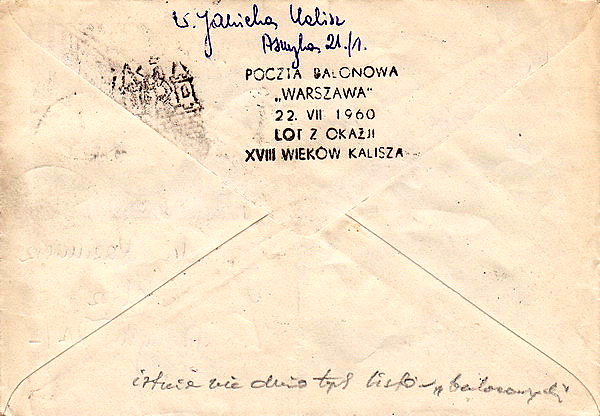 W. Janicka Kalisz
Asnyka 21/1.
POCZTA BALONOWA
„WARSZAWA"
22. VII 1960
LOT Z OKAZJI
XVIII WIEKÓW KALISZA
istnieje tych listów „balonowych"